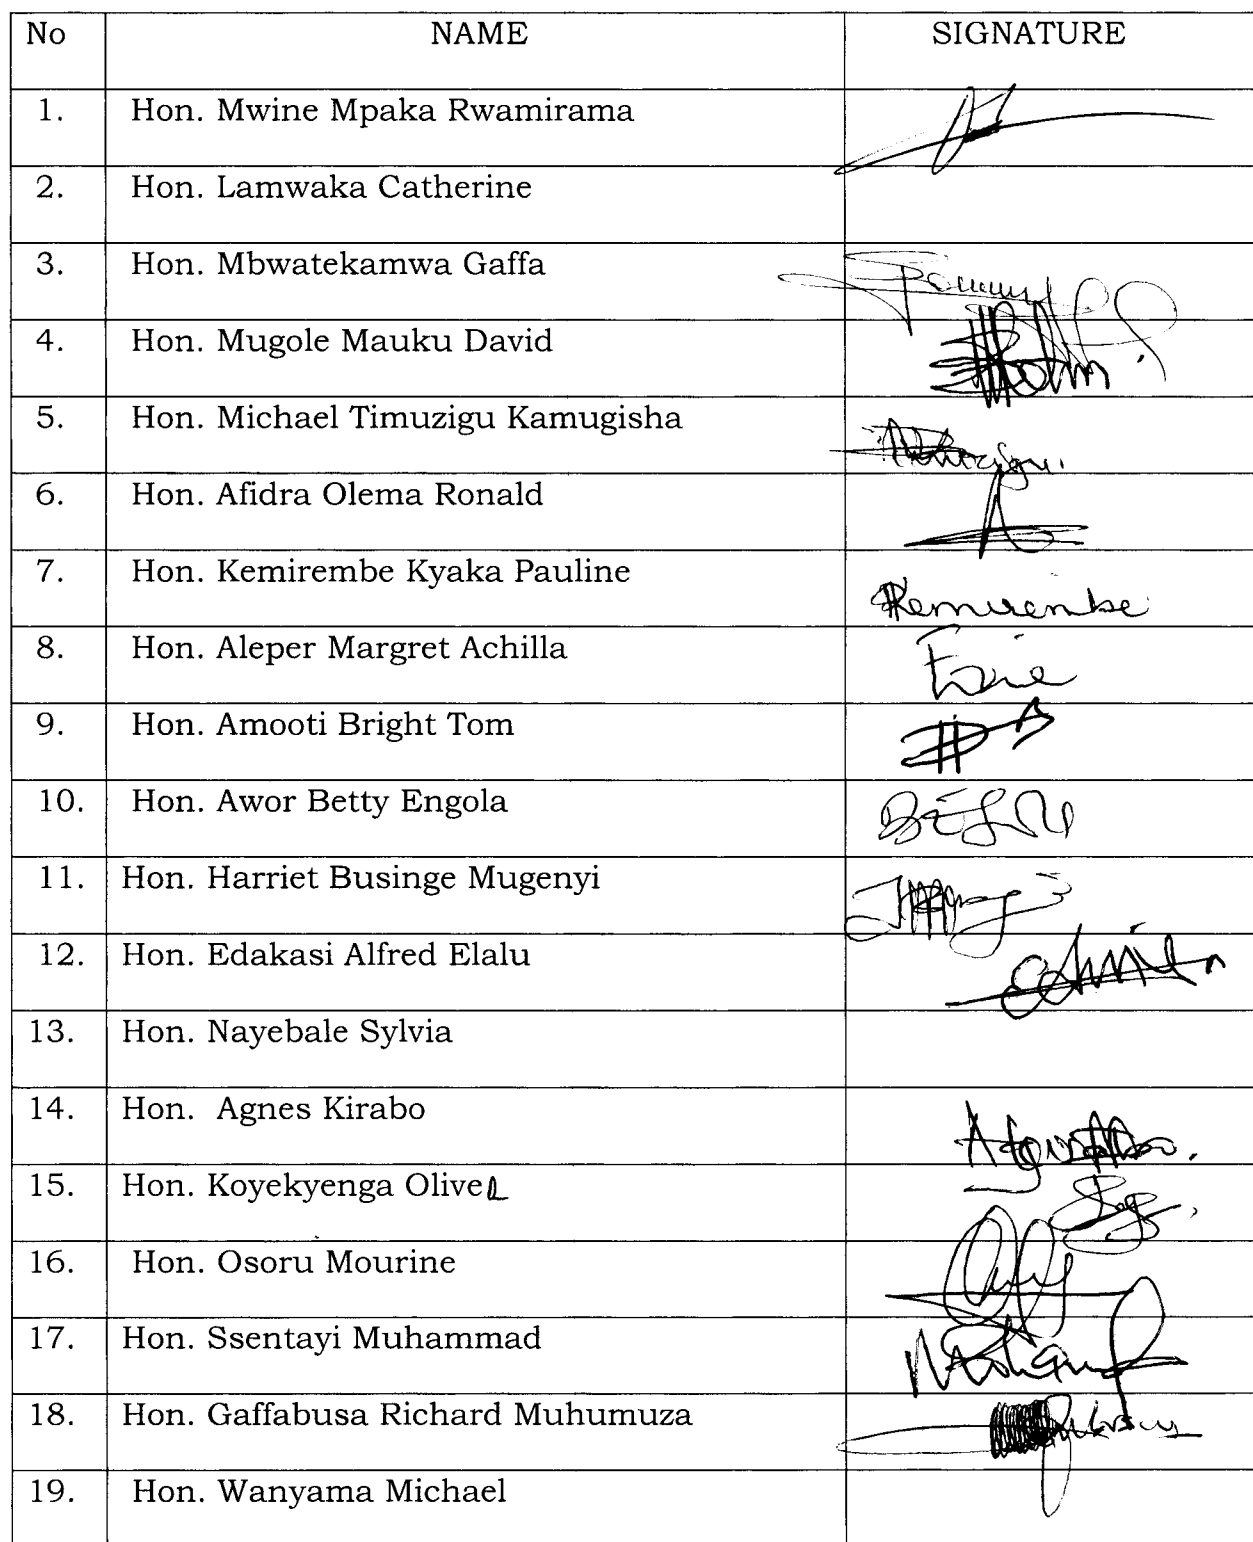 No NAME SIGNATURE
1. Hon. Mwine Mpaka Rwamirama
2. Hon. Lamwaka Catherine
3. Hon. Mbwatekamwa Gaffa
4. Hon. Mugole Mauku David
5. Hon. Michael Timuzigu Kamugisha
6. Hon. Afidra Olema Ronald
7. Hon. Kemirembe Kyaka Pauline Kemirembe
8. Hon. Aleper Margret Achilla
9. Hon. Amooti Bright Tom
10. Hon. Awor Betty Engola
11. Hon. Harriet Businge Mugenyi
12. Hon. Edakasi Alfred Elalu
13. Hon. Nayebale Sylvia
14. Hon. Agnes Kirabo
15. Hon. Koyekyenga Olive
16. Hon. Osoru Mourine
17. Hon. Ssentayi Muhammad
18. Hon. Gaffabusa Richard Muhumuza
19. Hon. Wanyama Michael